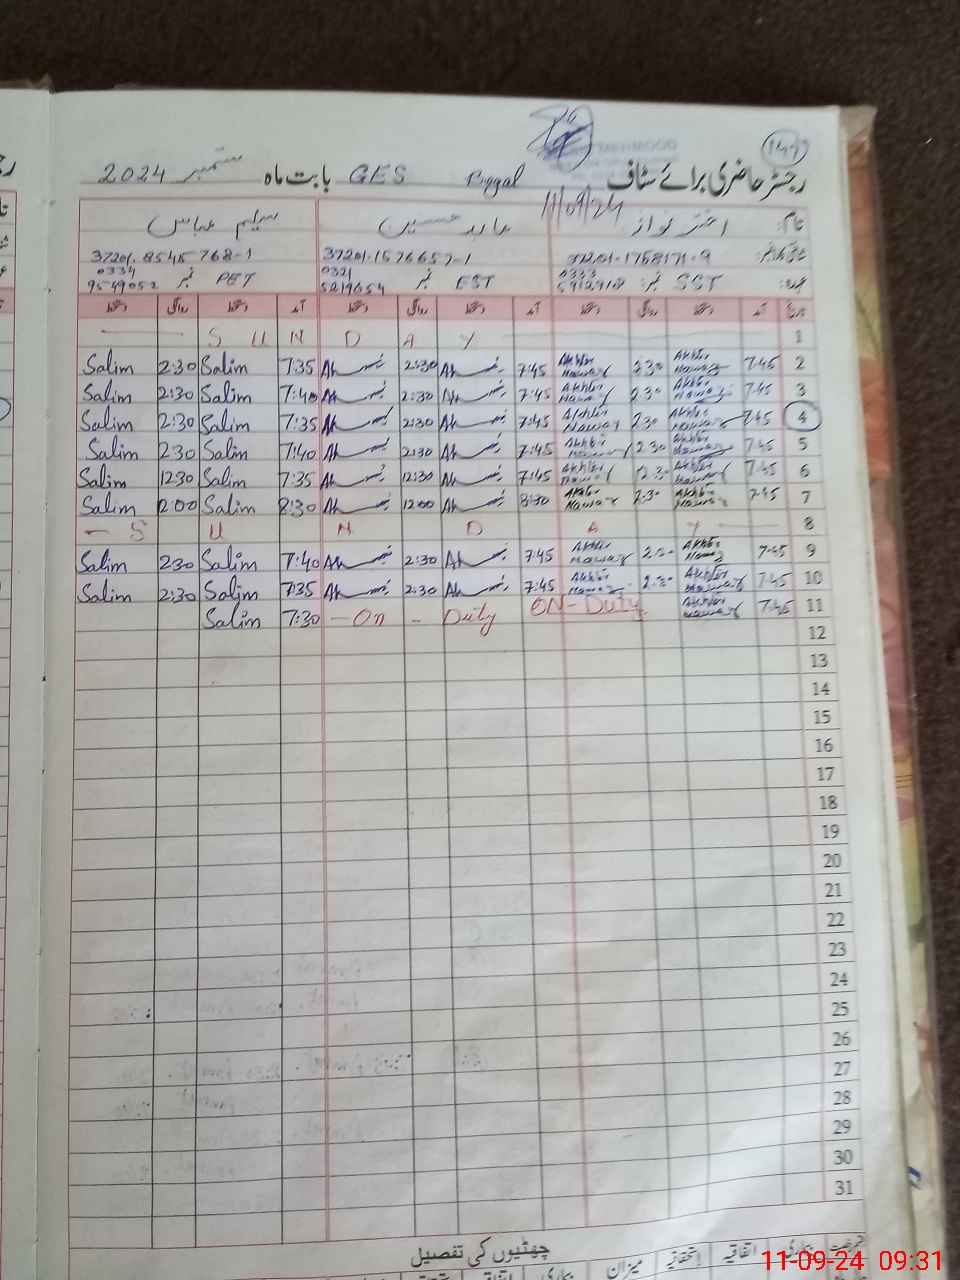 147
رجسٹر حاضری برائے سٹاف Pipyal GES بابت ماہ ستمبر 2024
11/09/24
نام: اختر نواز عابد حسین سلیم عباس
37201-1758171-9 37201-1576657-1 37201-8545768-1
عہدہ: SST نمبر 0333 EST نمبر 0321 5219654 PET نمبر 0334 9549052
تاریخ آمد دستخط روانگی دستخط آمد دستخط روانگی دستخط آمد دستخط روانگی دستخط
1 S U N D A Y
2 7:45 Akhtar Nawaz 2:30 Akhtar Nawaz 7:45 2:30 7:35 Salim 2:30 Salim
3 7:45 Akhtar Nawaz 2:30 Akhtar Nawaz 7:45 2:30 7:40 Salim 2:30 Salim
4 7:45 Akhtar Nawaz 2:30 Akhtar Nawaz 7:45 2:30 7:35 Salim 2:30 Salim
5 7:45 Akhtar Nawaz 2:30 Akhtar Nawaz 7:45 2:30 7:40 Salim 2:30 Salim
6 7:45 Akhtar Nawaz 12:30 Akhtar Nawaz 7:45 12:30 7:35 Salim 12:30 Salim
7 7:45 Akhtar Nawaz 2:30 Akhtar Nawaz 8:30 12:00 8:30 Salim 2:00 Salim
8 S U N D A Y
9 7:45 Akhtar Nawaz 2:30 Akhtar Nawaz 7:45 2:30 7:40 Salim 2:30 Salim
10 7:45 Akhtar Nawaz 2:30 Akhtar Nawaz 7:45 2:30 7:35 Salim 2:30 Salim
11 7:45 Akhtar Nawaz ON-Duty On - Duty 7:30 Salim
12
13
14
15
16
17
18
19
20
21
22
23
24
25
26
27
28
29
30
31
چھٹیوں کی تفصیل
بیماری اتفاقیہ استحقاقیہ میزان بیماری اتفاقیہ
11-09-24 09:31